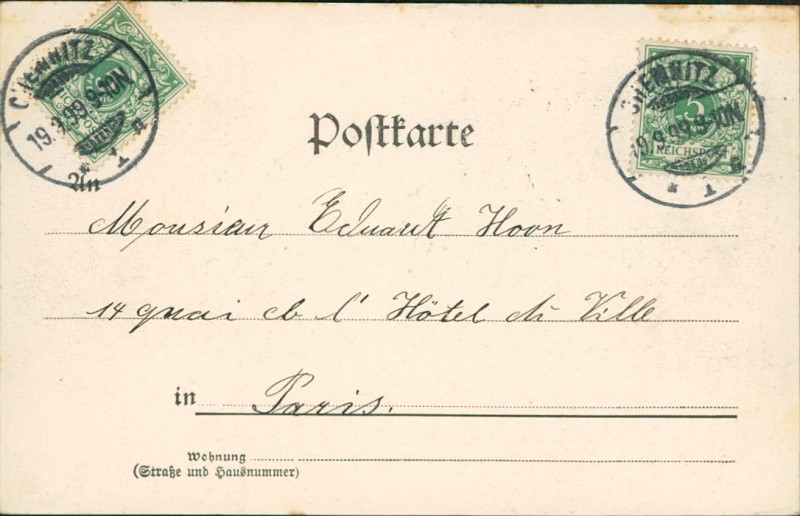 CHEMNITZ
19.9.99.9-10N
* 1 a
CHEMNITZ
19.9.99.9-10N
* 1 a
5
REICHSPOST
Postkarte
An
Monsieur Eduard Hoon
14 quai de l'Hôtel de Ville
in Paris.
Wohnung
(Straße und Hausnummer)